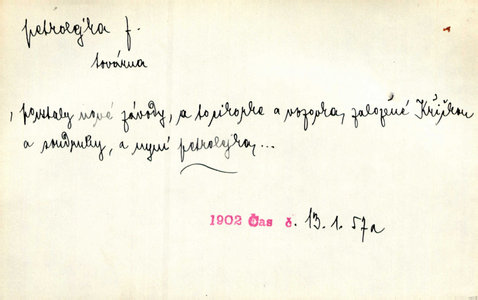 petrolejka f.
továrna
, povstaly nové závody, a to a vozovka, založené Křižíkem
a soudruhy, a nyní petrolejka, ...
1902 Čas č. 13. 1. 57a